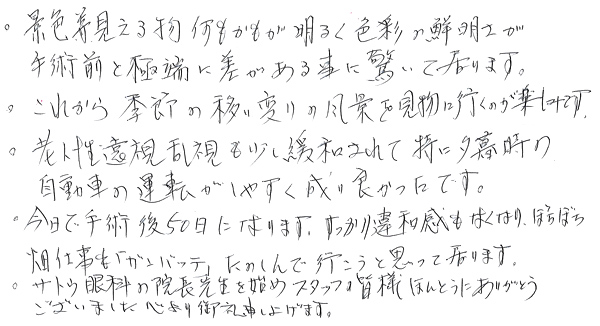 。景色等見える物何もかもが明るく色彩の鮮明さが
手術前と極端に差がある事に驚いて居ります。
。これから季節の移り変りの風景を見物に行くのが楽しみです。
。老人性遠視乱視も少し緩和されて特に夕暮時の
自動車の運転がしやすく成り良かったです。
。今日で手術後50日になります。すっかり違和感もなくなり、ぼちぼち
畑仕事も「ガンバッテ」たのしんで行こうと思って居ります。
。サトウ眼科の院長先生を始めスタッフの皆様ほんとうにありがとう
ございました 心より御礼申し上げます。